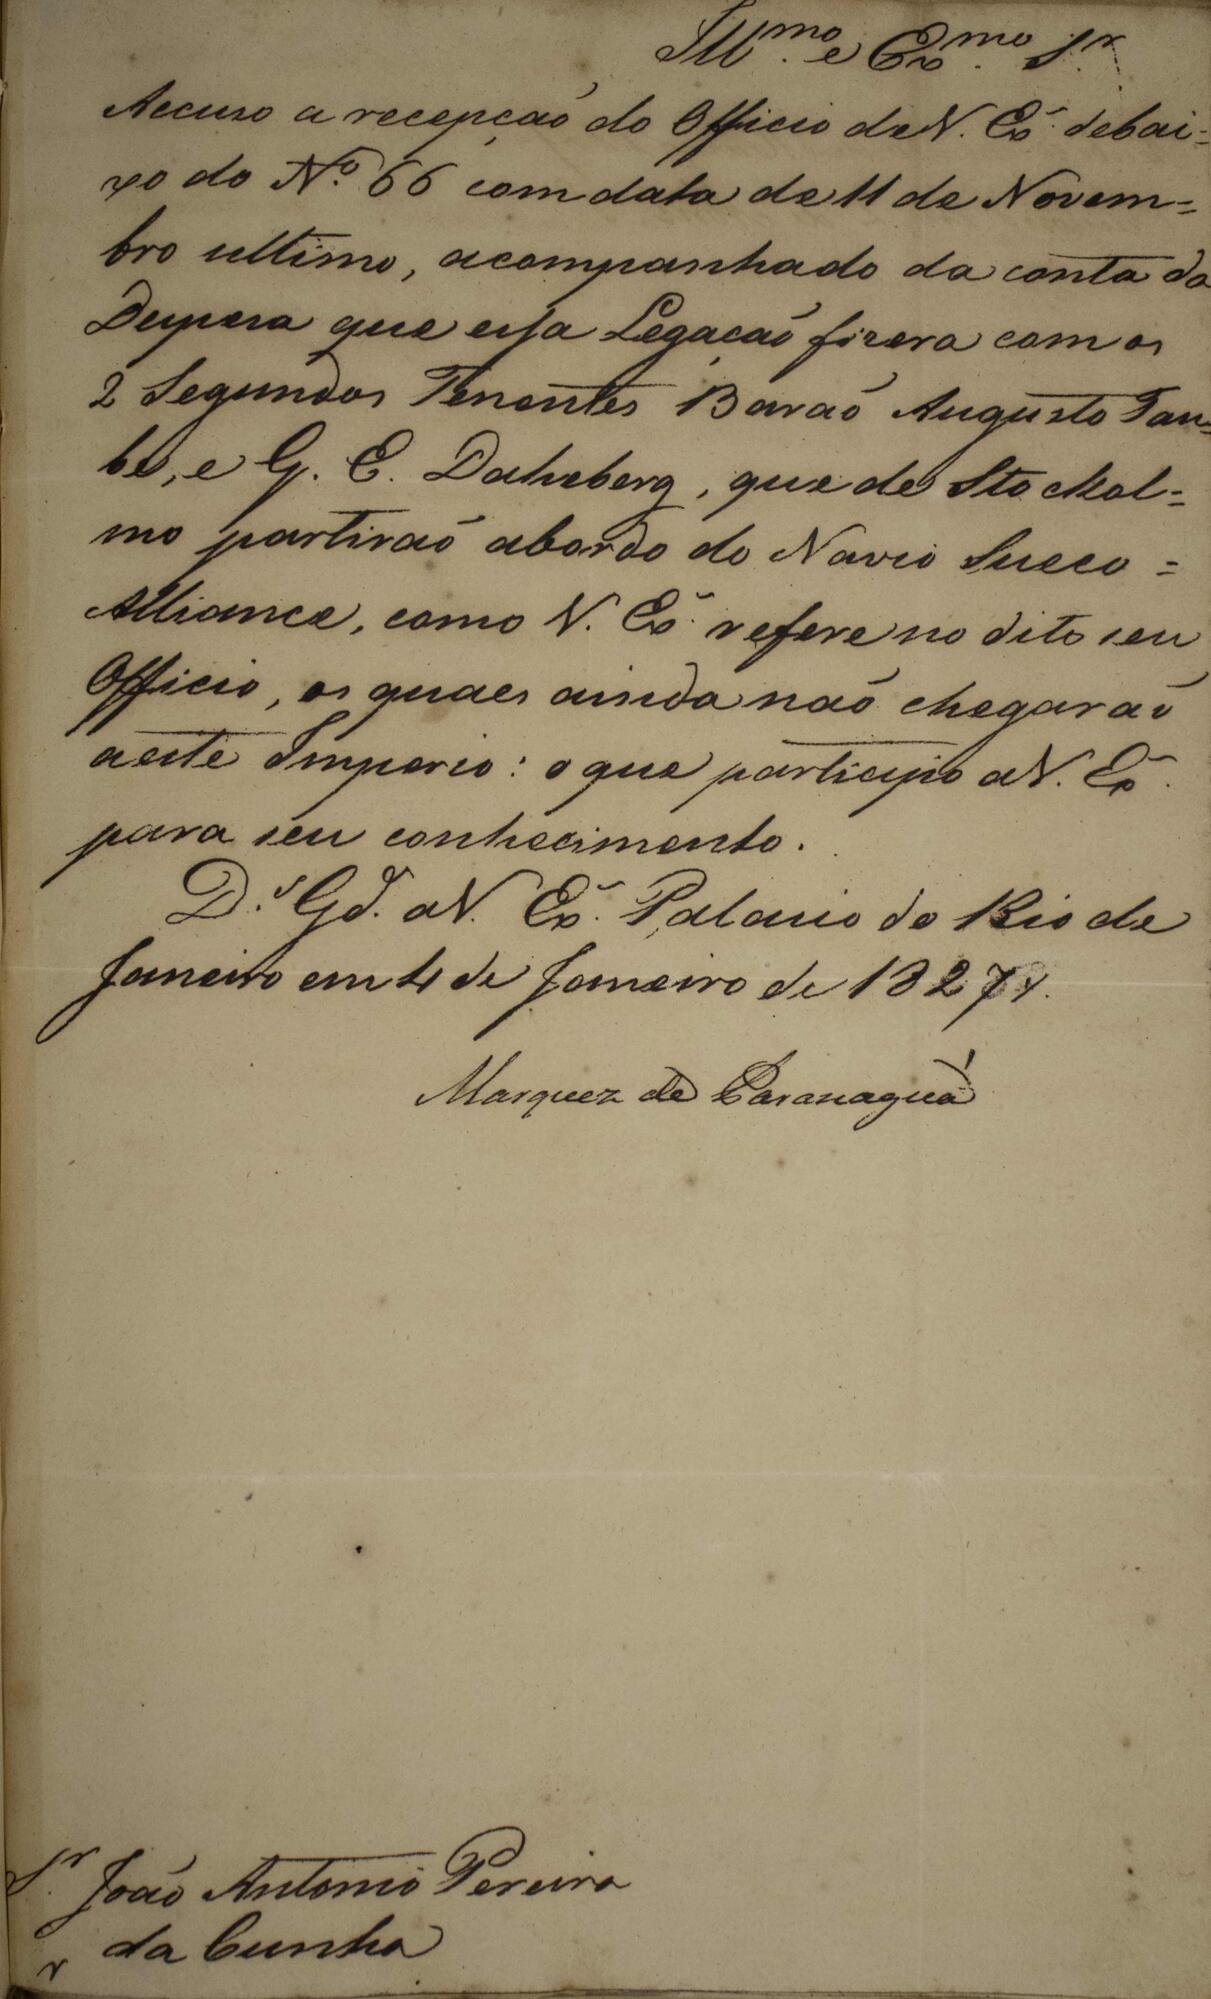 Illmo. e Exmo. Sr.
Accuso a recepção do Officio de V. Exa. debai=
xo do No. 66 com data de 11 de Novem=
bro ultimo, acompanhado da conta da
Despesa que essa Legação fizera com os
2 Segundos Tenentes Barão Augusto Tau=
be, e G. E. Daheberg, que de Stockol=
mo partirão abordo do Navio Sueco =
Alliance, como V. Exa. refere no dito seu
Officio, os quaes ainda não chegarão
a este Imperio: o que participo a V. Exa.
para seu conhecimento.
Ds. Gde. a V. Exa. Palacio do Rio de
Janeiro em 4 de Janeiro de 1827.
Marquez de Paranaguá
Sr. João Antonio Pereira
da Cunha